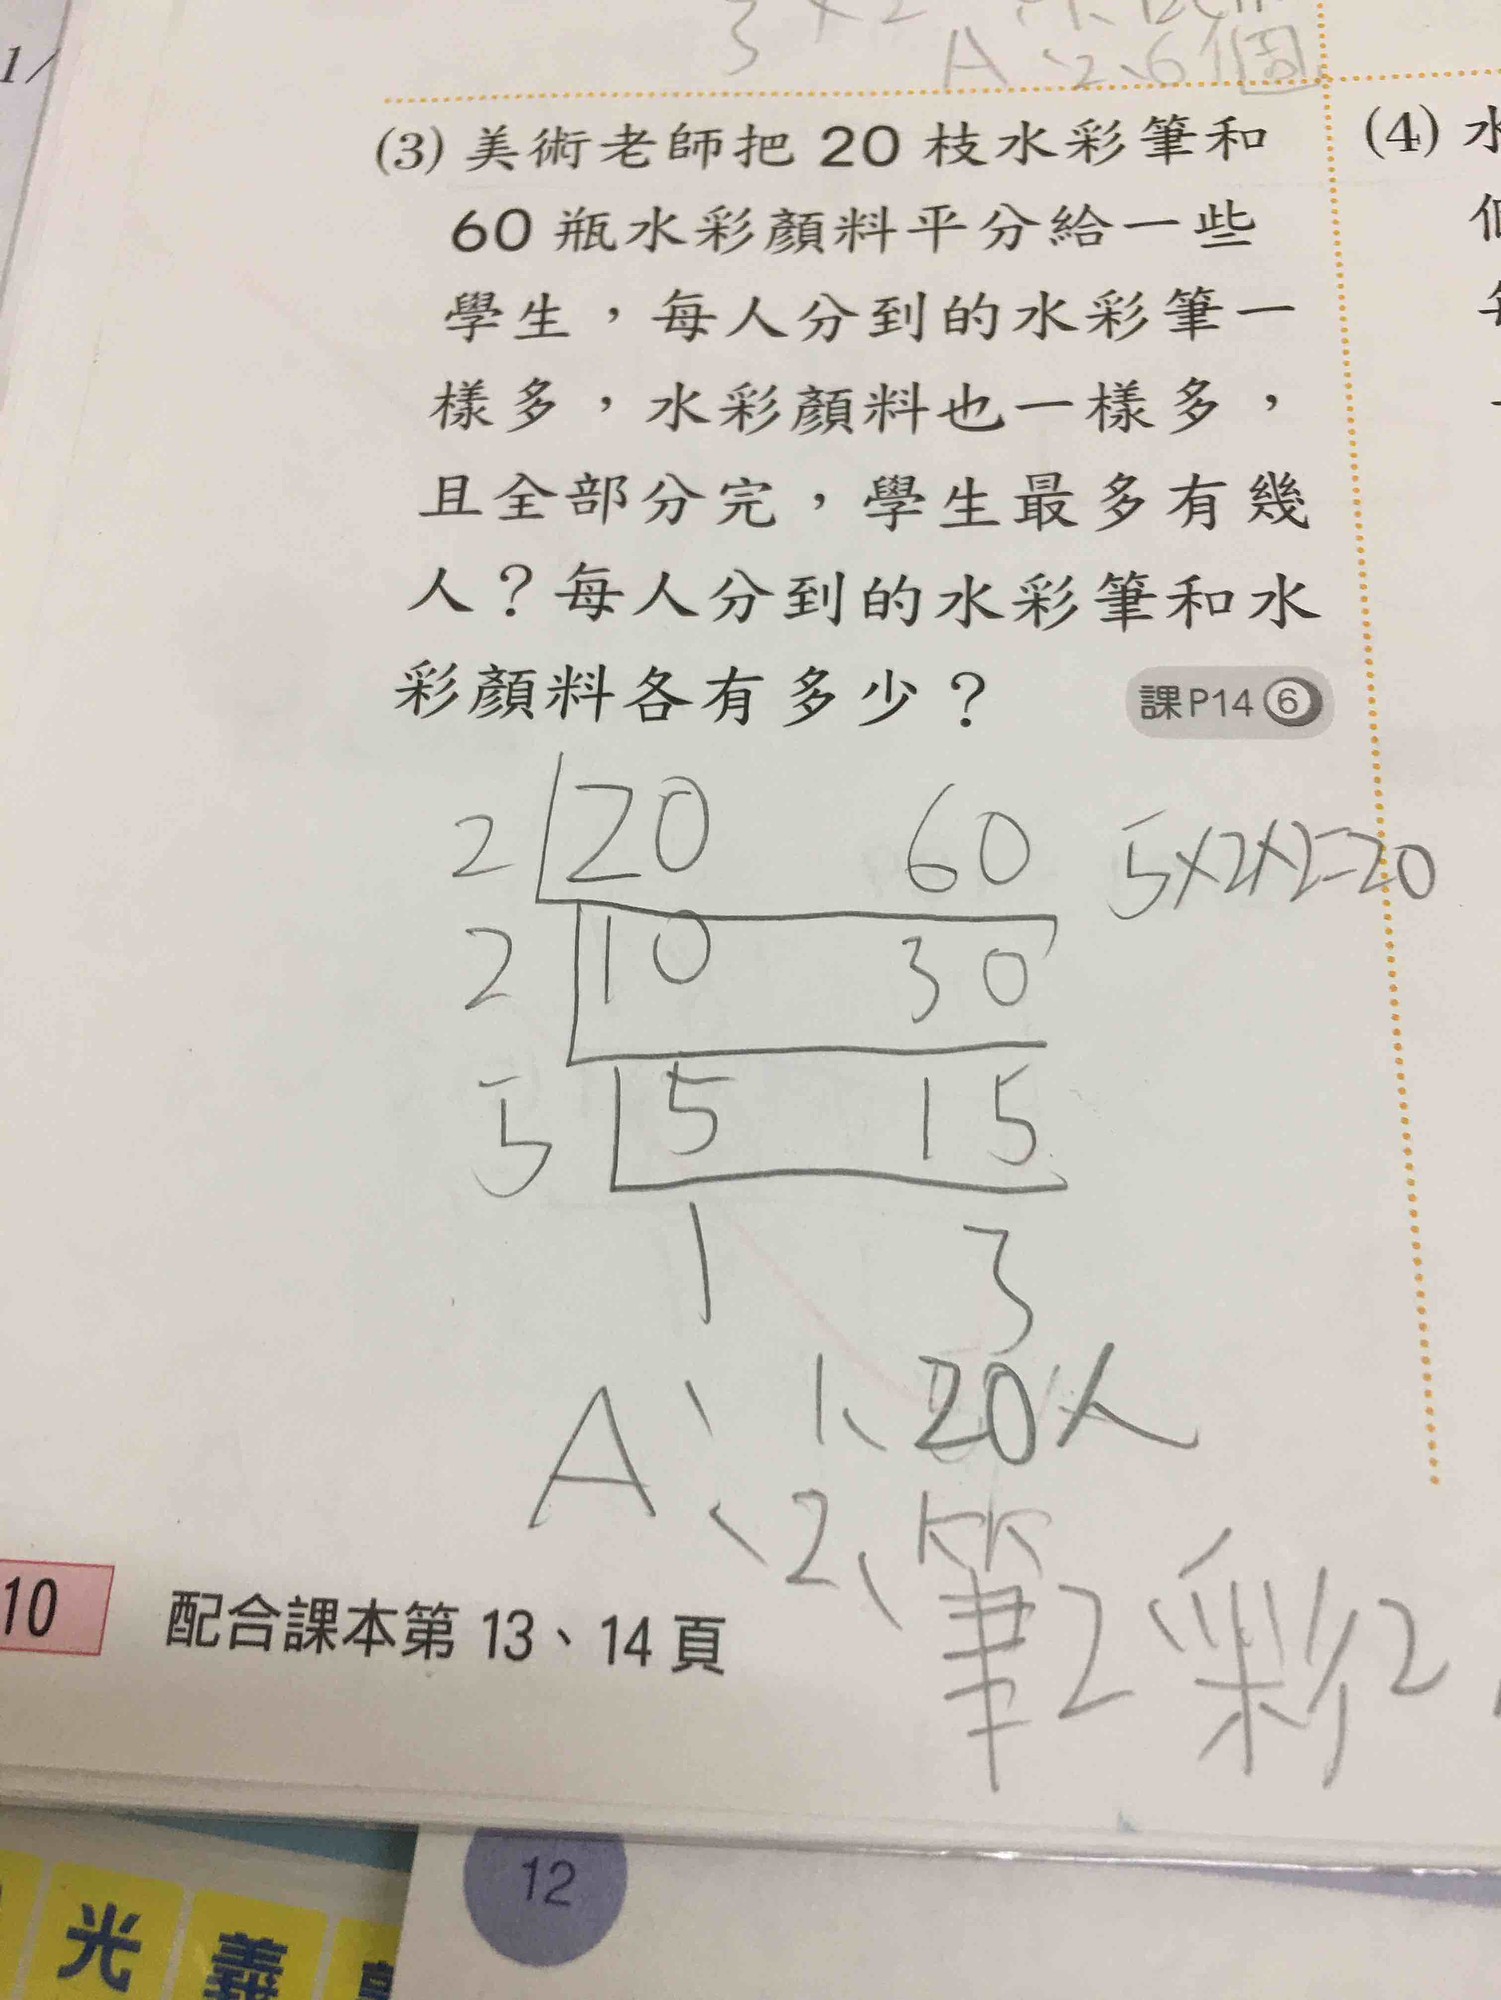 1/
3×2
A:2、6個
(3) 美術老師把 20 枝水彩筆和
60 瓶水彩顏料平分給一些
學生，每人分到的水彩筆一
樣多，水彩顏料也一樣多，
且全部分完，學生最多有幾
人？每人分到的水彩筆和水
彩顏料各有多少？
課P14⑥
(4) 水
2 20 60
5×2×2=20
2 10 30
5 5 15
1 3
A：1、20人
2、筆2、彩2
10
配合課本第 13、14 頁
12
光 義